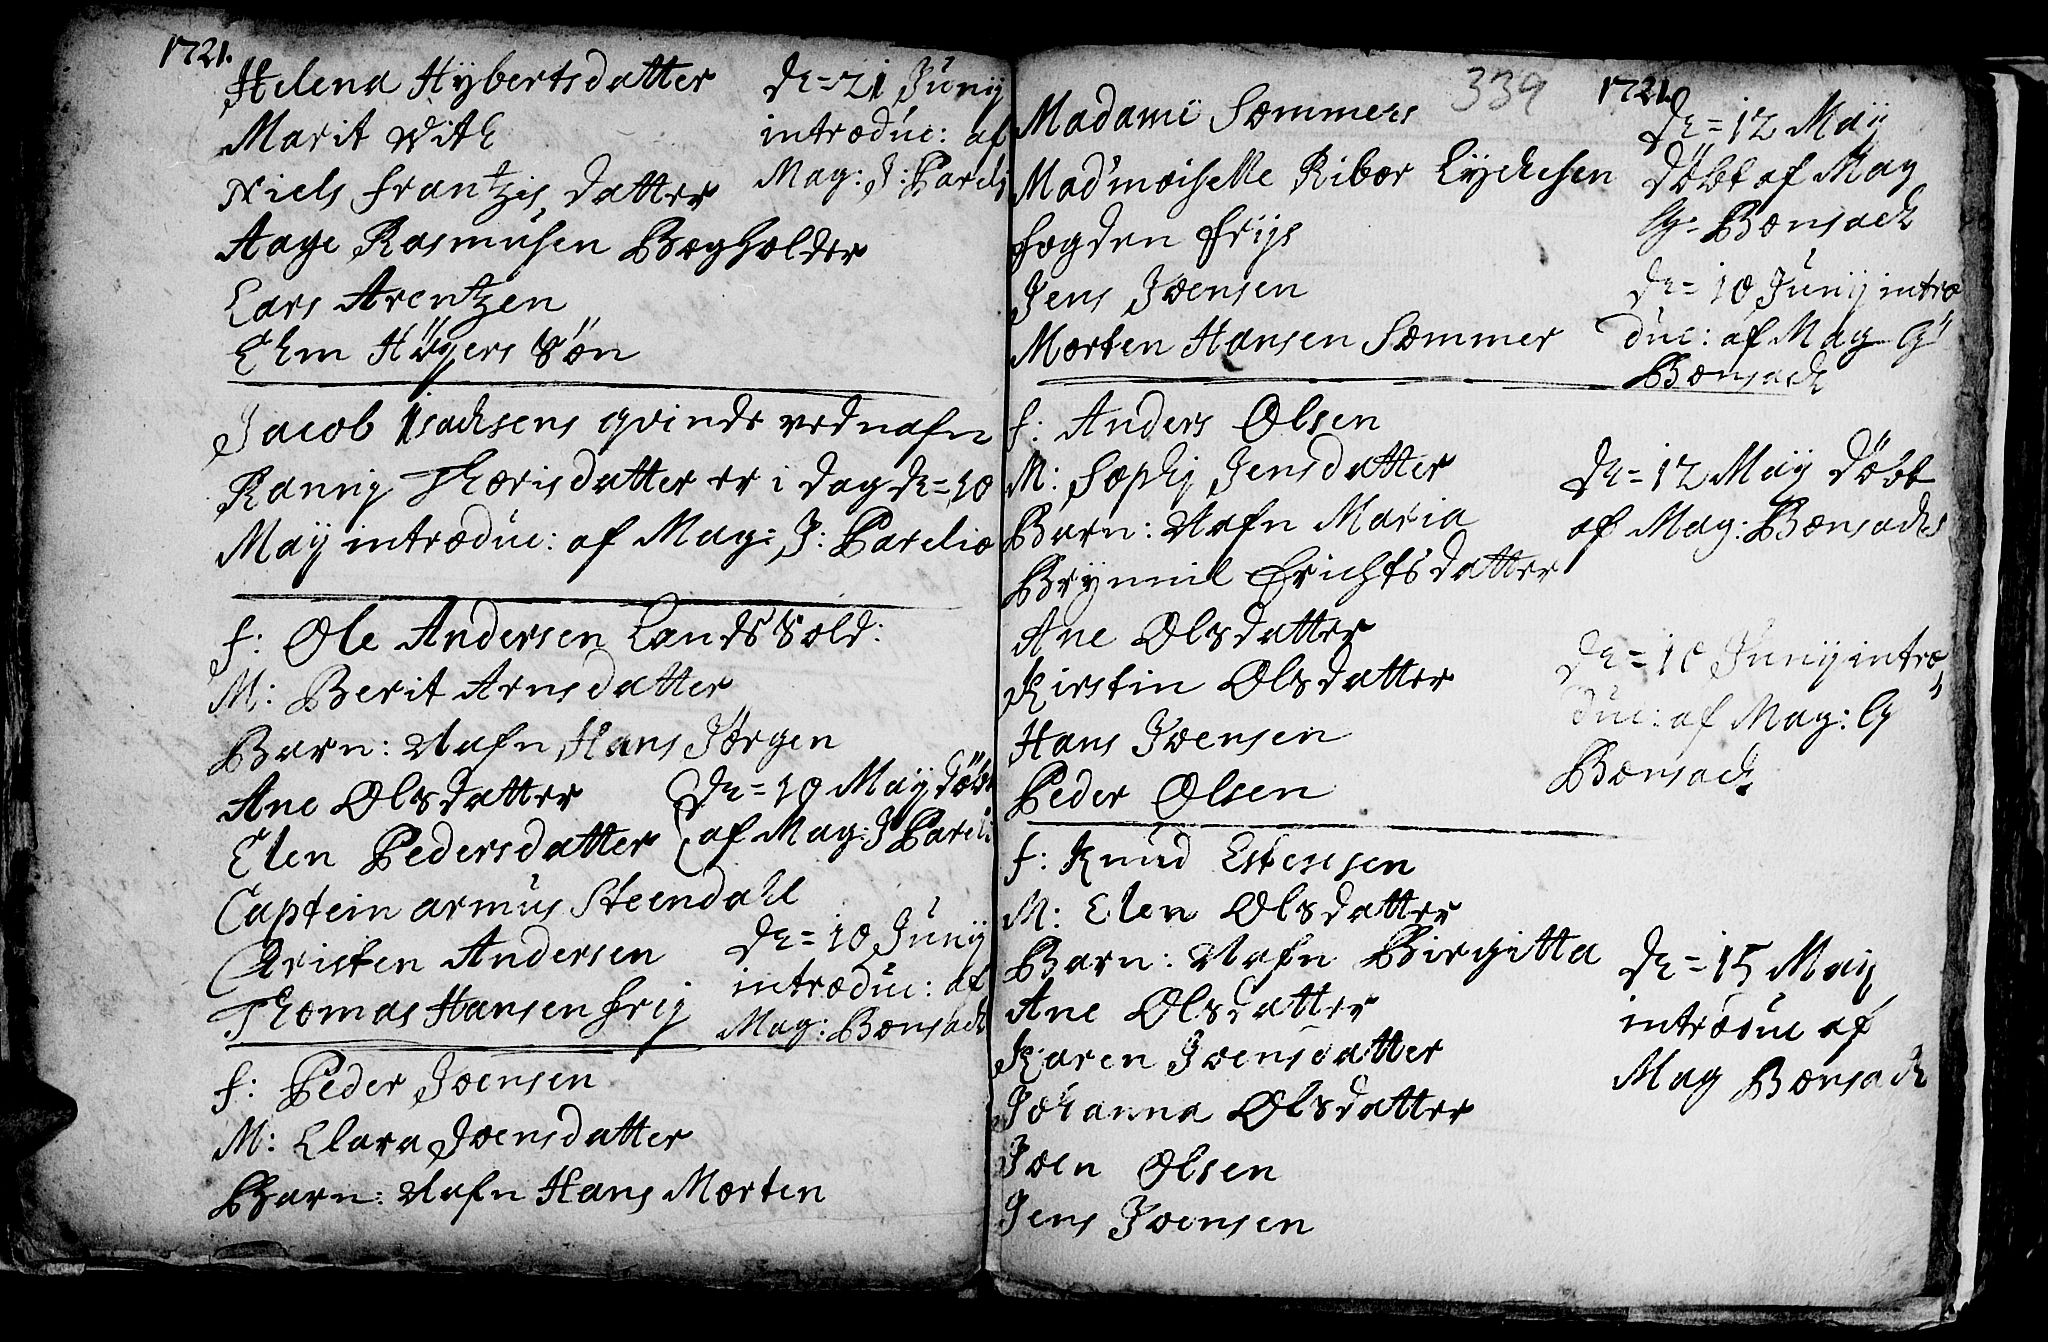 1721.
Helena Hÿbertsdatter
Marit With
Niels frantzis datter
Aage Rasmusen Bogholder
Lars Arentzen
Elm Höÿers Søn
de= 21 Junij
introduc: af
Mag: J: Pareli
Jacob Isachsens qvinde ved nafn
Rannij Thorisdatter er i dag de= 10
Maij introduc: af Mag: J: Parelio
f: Ole Andersen Lands Sold:
M: Berit Arnsdatter
Barn: Nafn Hans Jörgen
Ane Olsdatter
Elen Pedersdatter
Captein armus Steendahl
Christen Andersen
Thomas Hansen frij
de= 10 Maij döbt
af Mag: J Pareli
de= 10 Junij
introduc: af
Mag: Bonsach
f: Peder Joensen
M: Clara Joensdatter
Barn: Nafn Hans Morten
339
1721.
Madame Sommers
Madmoiselle Ribor Lÿchesen
fogden frijs
Jens Joensen
Morten Hansen Sommer
de= 12 Maij
döbt af Mag
G: Bonsach
de= 10 Junij intro
duc: af Mag G
Bonsach
f: Anders Olsen
M: Sophij Jensdatter
Barn: Nafn Maria
Brÿnnil Erichsdatter
Ane Olsdatter
Kirstin Olsdatter
Hans Joensen
Peder Olsen
de= 12 Maij döbt
af Mag: Bonsachs
de= 10 Junij intro
duc: af Mag: G
Bonsach
f: Knud Estensen
M: Elen Olsdatter
Barn: Nafn Birgitta
Ane Olsdatter
Karen Joensdatter
Johanna Olsdatter
Joen Olsen
Jens Joensen
de= 15 Maij
introduc af
Mag Bonsach